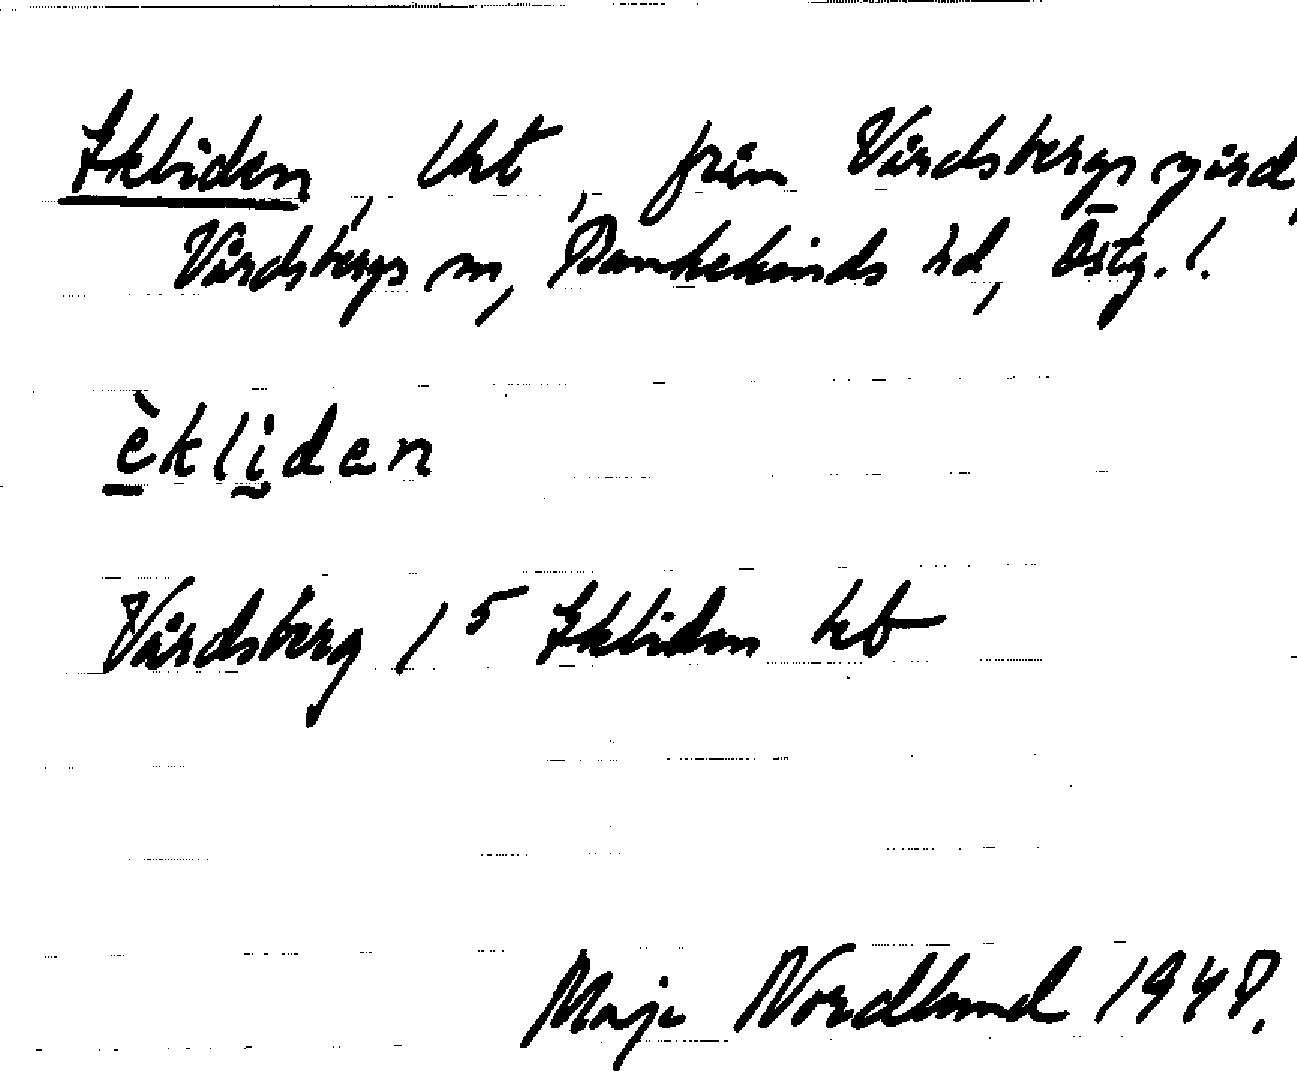 Ekliden, lht, från Vårdsbergs gård,
Vårdsbergs sn, Bankekinds hd, Östg. l.
èkliden
Vårdsberg 1⁵ Ekliden lht
Maja Nordlund 1948.